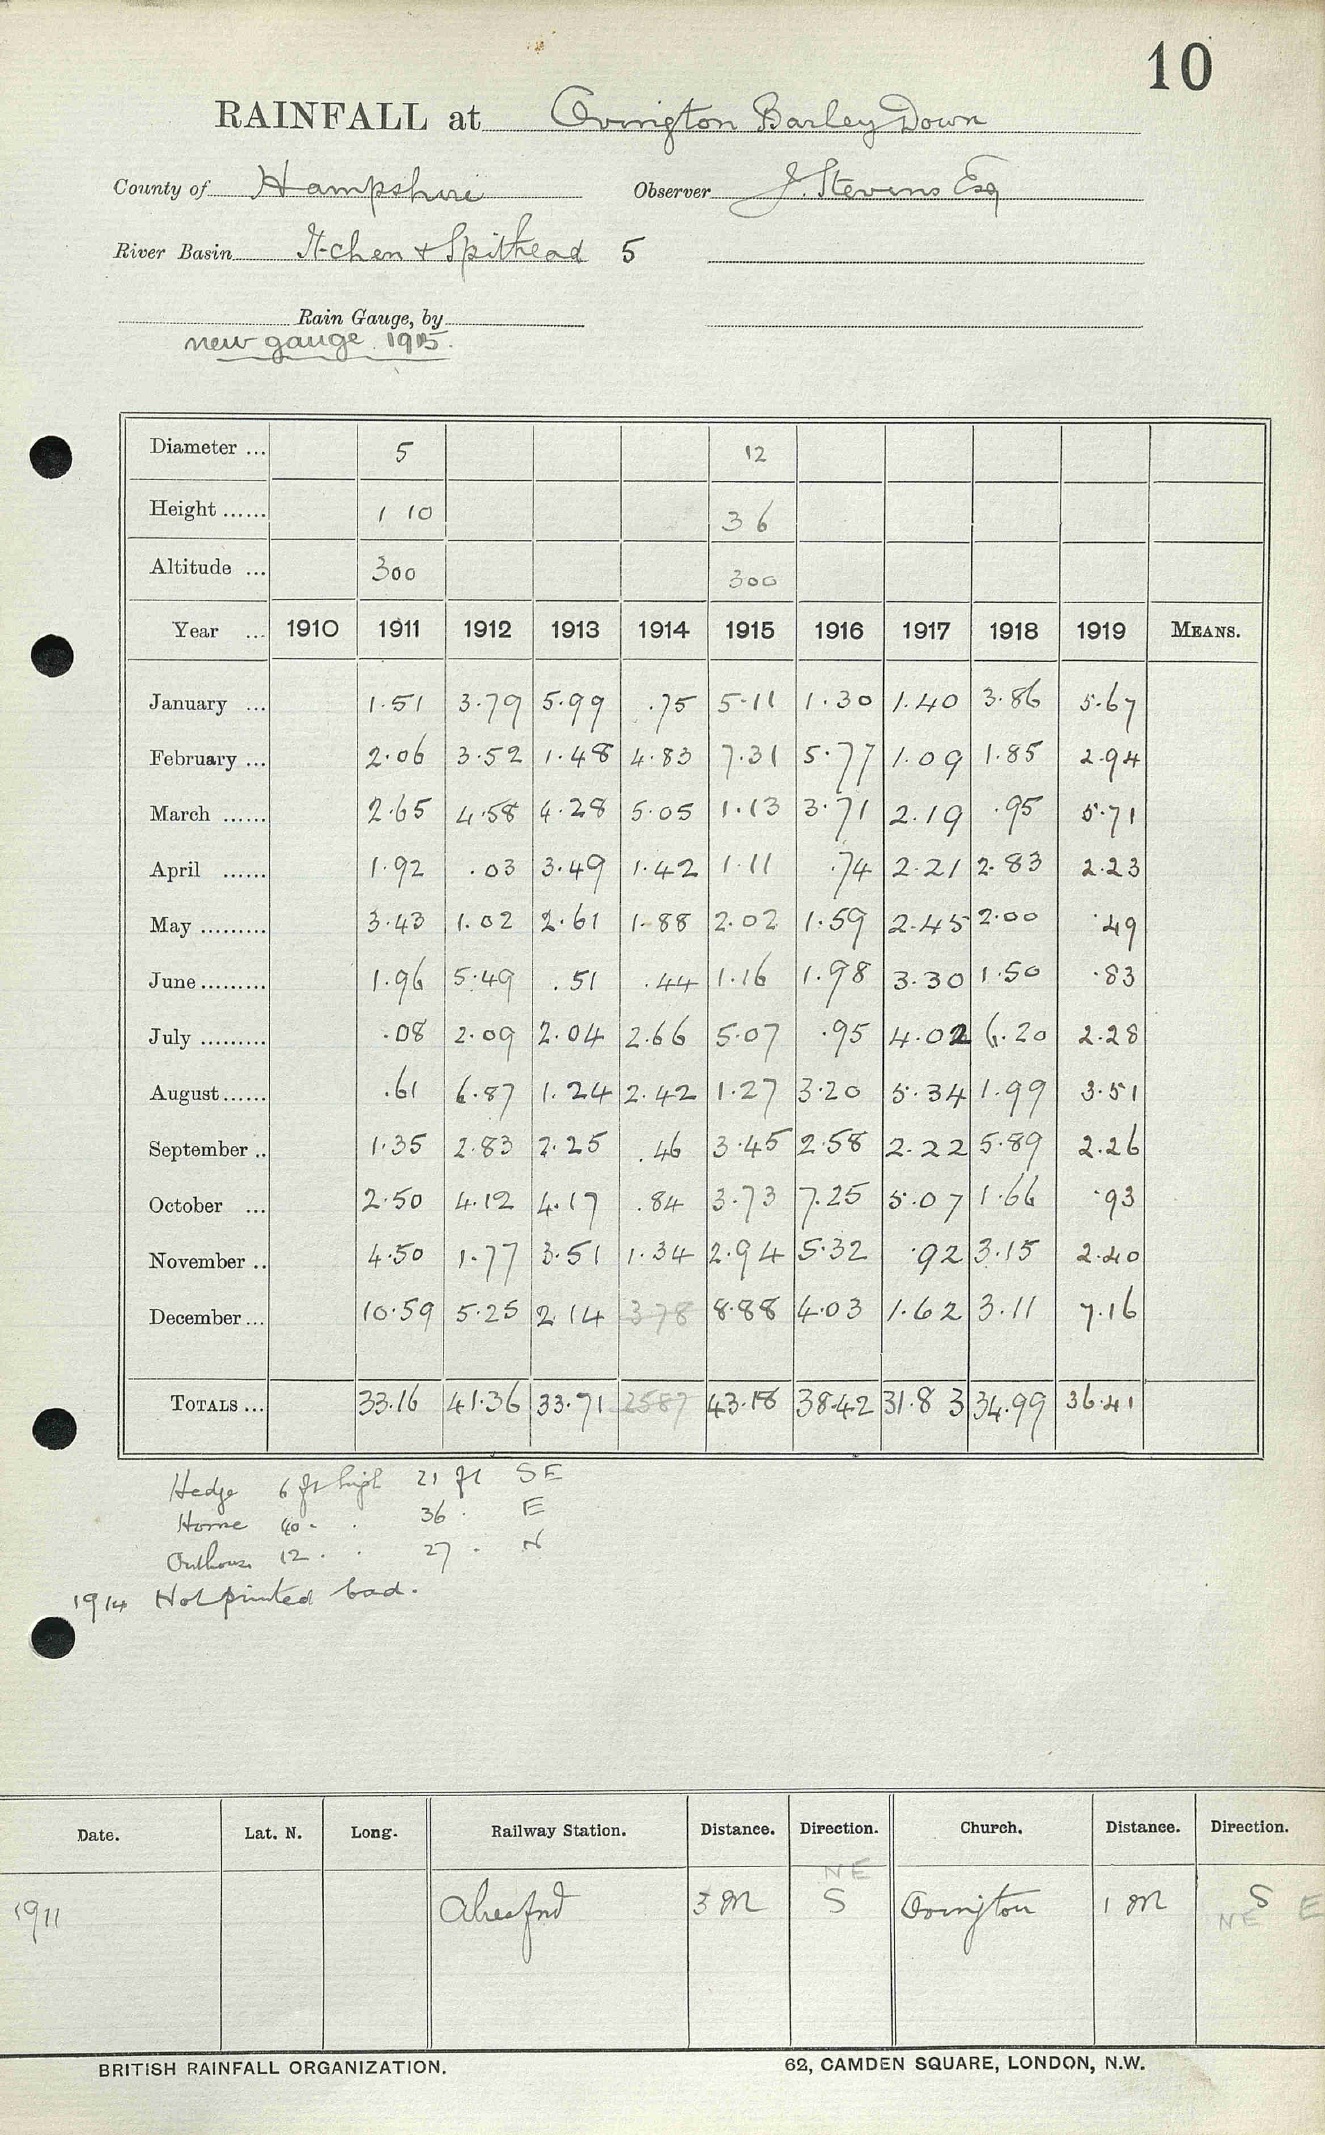 10
RAINFALL at Ovington Barley Down
County of Hampshire Observer J. Stevens Esq
River Basin Itchen & Spithead 5
Rain Gauge, by
new gauge 1915.
Diameter ... 5 12
Height ...... 1 10 3 6
Altitude ... 300 300
Year ... 1910 1911 1912 1913 1914 1915 1916 1917 1918 1919 MEANS.
January ... 1.51 3.79 5.99 .75 5.11 1.30 1.40 3.86 5.67
February ... 2.06 3.52 1.48 4.83 7.31 5.77 1.09 1.85 2.94
March ...... 2.65 4.58 4.28 5.05 1.13 3.71 2.19 .95 5.71
April ...... 1.92 .03 3.49 1.42 1.11 .74 2.21 2.83 2.23
May ......... 3.43 1.02 2.61 1.88 2.02 1.59 2.45 2.00 .49
June ......... 1.96 5.49 .51 .44 1.16 1.98 3.30 1.50 .83
July ......... .08 2.09 2.04 2.66 5.07 .95 4.02 6.20 2.28
August ...... .61 6.87 1.24 2.42 1.27 3.20 5.34 1.99 3.51
September .. 1.35 2.83 2.25 .46 3.45 2.58 2.22 5.89 2.26
October ... 2.50 4.12 4.17 .84 3.73 7.25 5.07 1.66 .93
November .. 4.50 1.77 3.51 1.34 2.94 5.32 .92 3.15 2.40
December ... 10.59 5.25 2.14 3.78 8.88 4.03 1.62 3.11 7.16
TOTALS ... 33.16 41.36 33.71 25.87 43.18 38.42 31.83 34.99 36.41
Hedge 6 ft high 21 ft SE
House 40 . . 36 . E
Outhouse 12 . . 27 . N
1914 Not printed bad.
Date. Lat. N. Long. Railway Station. Distance. Direction. Church. Distance. Direction.
NE
1911 Alresford 3 M S Ovington 1 M S
NE E
BRITISH RAINFALL ORGANIZATION. 62, CAMDEN SQUARE, LONDON, N.W.